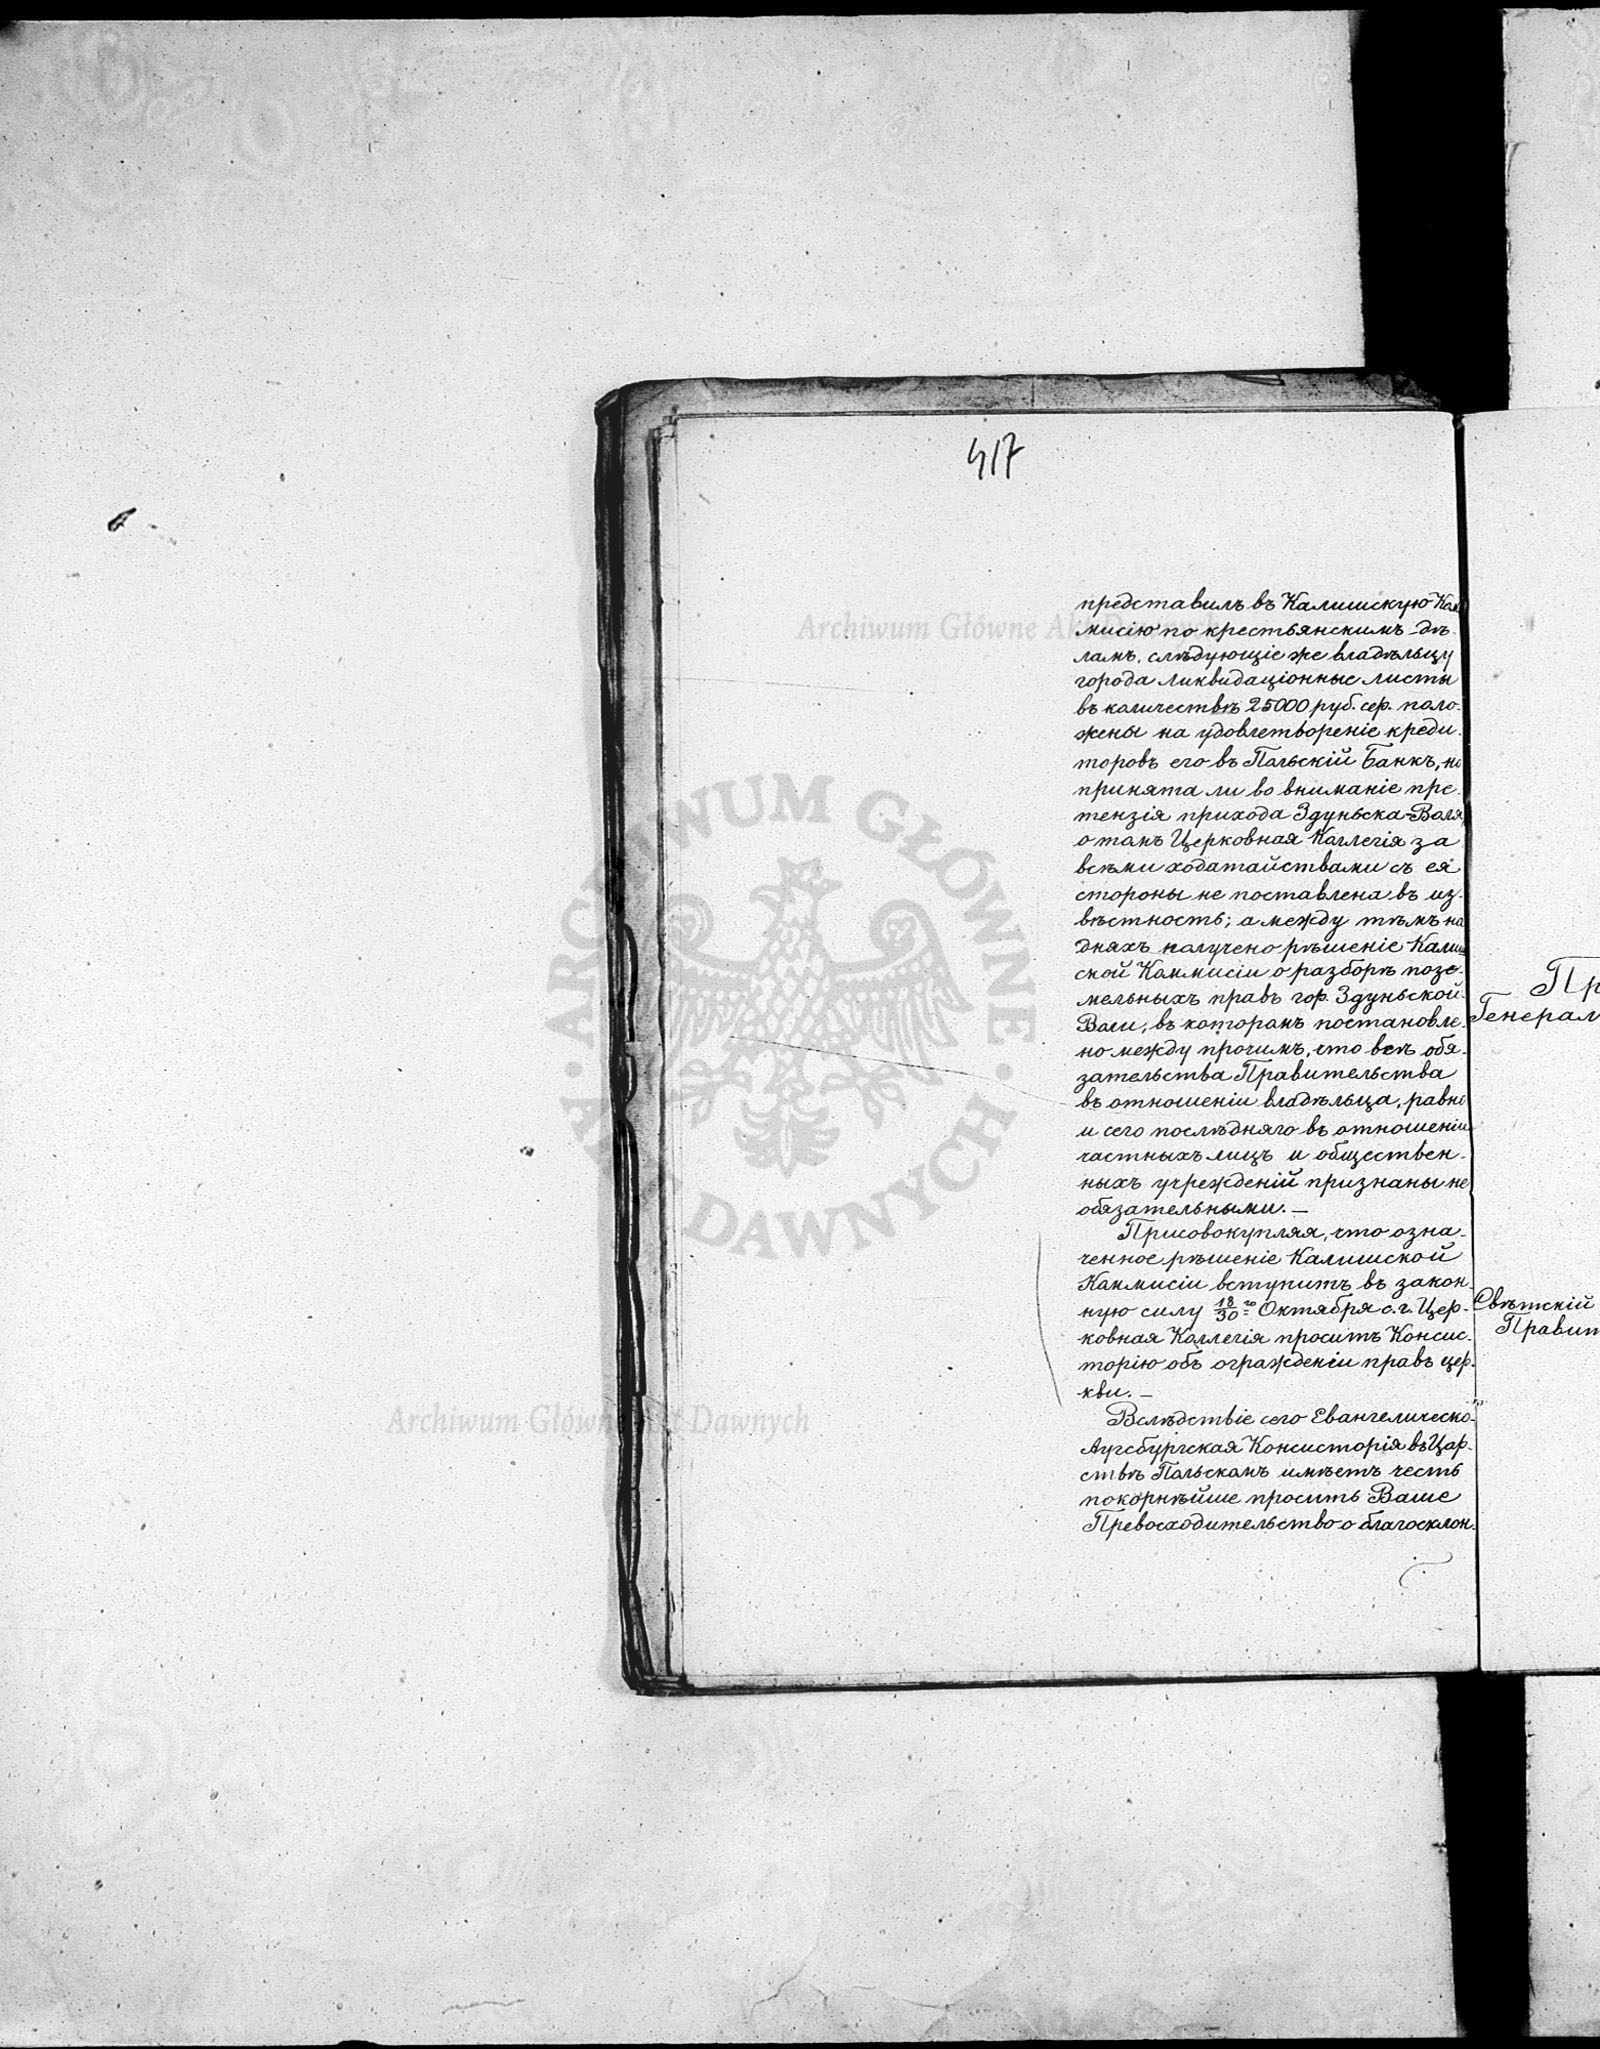 417
представилъ въ Калишскую Ком
мисію по крестьянскимъ дѣ-
ламъ, слѣдующіе же владѣльцу
города ликвидаціонные листы
въ количествѣ 25000 руб. сер. поло-
жены на удовлетвореніе креди-
торовъ его въ Польскій Банкъ, но
принята ли во вниманіе пре-
тензія прихода Здуньска-Воля,
о томъ Церковная Коллегія за
всѣми ходатайствами съ ея
стороны не поставлена въ из-
вѣстность; а между тѣмъ на
дняхъ получено рѣшеніе Калиш
ской Коммисіи о разборѣ позе-
мельныхъ правъ гор. Здуньской-
Воли, въ которомъ постановле-
но между прочимъ, что всѣ обя-
зательства Правительства
въ отношеніи владѣльца, равно
и сего послѣдняго въ отношеніи
частныхъ лицъ и обществен-
ныхъ учрежденій признаны не
обязательными. —
Присовокупляя, что озна-
ченное рѣшеніе Калишской
Коммисіи вступитъ въ закон-
ную силу 18/30 го Октября с. г. Цер-
ковная Коллегія проситъ Консис-
торію объ огражденіи правъ цер-
кви. —
Вслѣдствіе сего Евангелическо-
Аугсбургская Консисторія въ Цар-
ствѣ Польскомъ имѣетъ честь
покорнѣйше просить Ваше
Превосходительство о благосклон-
Пр
Генерал
Свѣтскій
Правит
Archiwum Główne Akt Dawnych
ARCHIWUM GŁÓWNE AKT DAWNYCH
Archiwum Główne Akt Dawnych